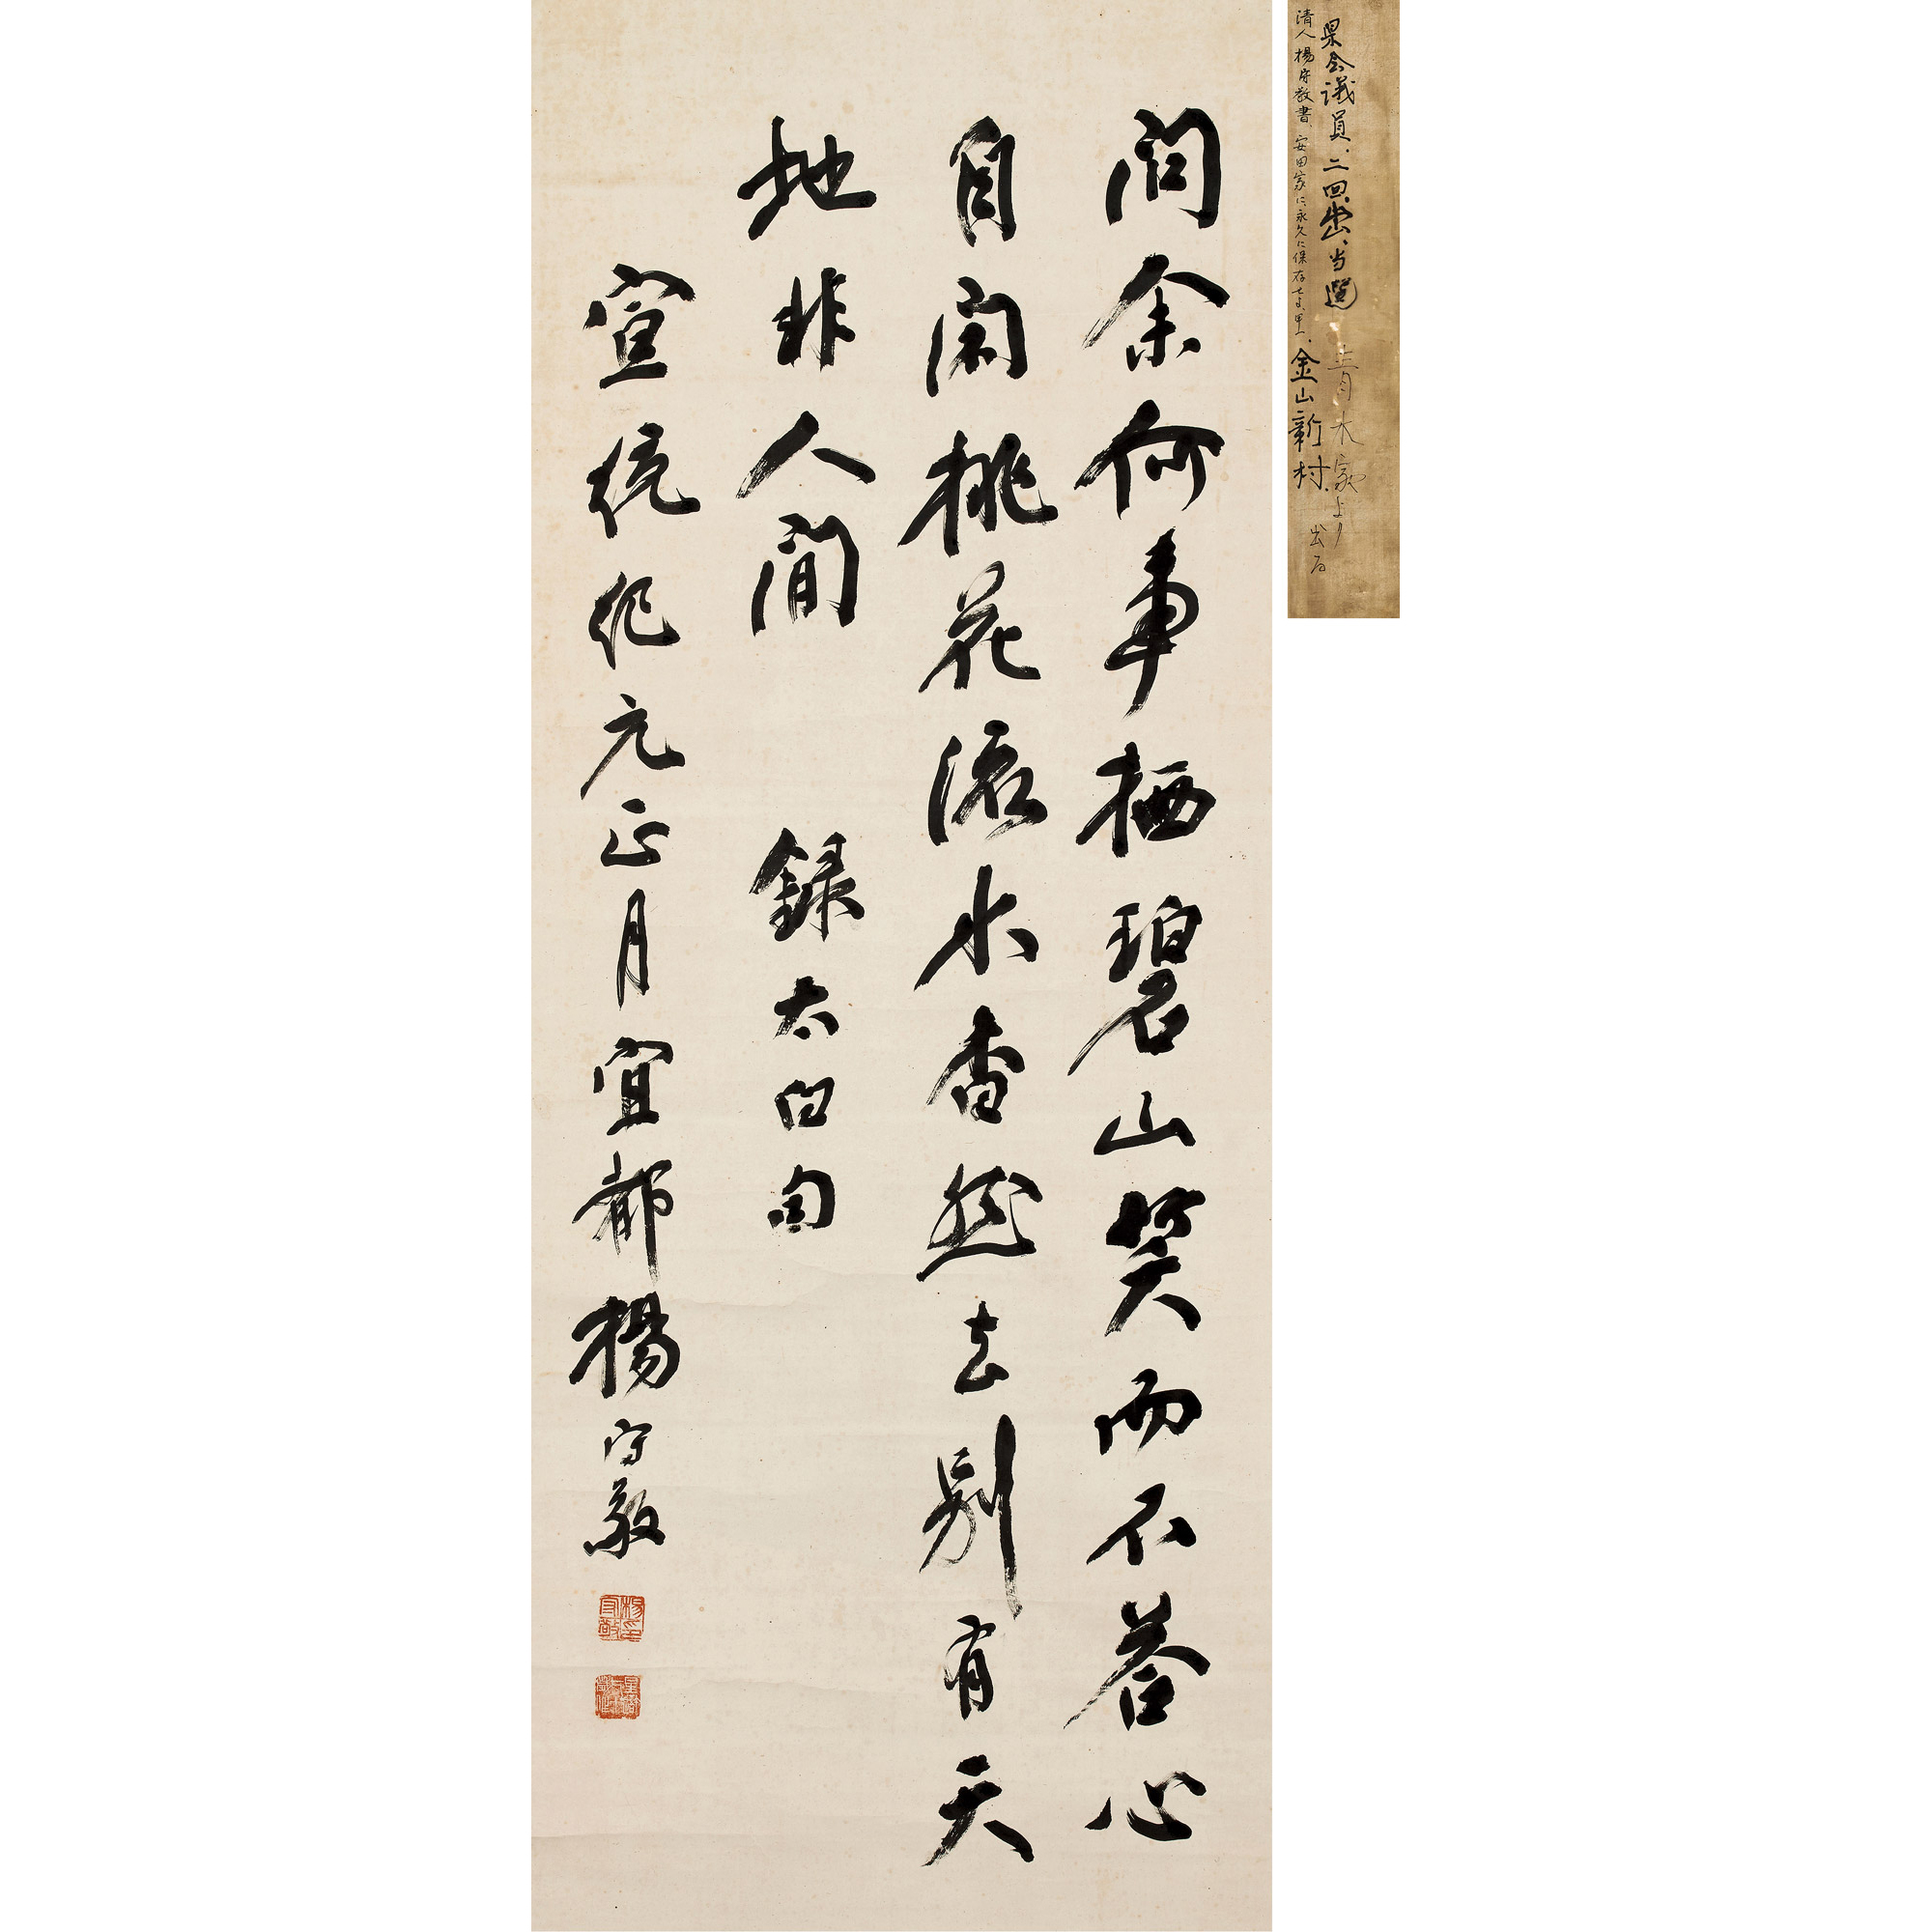 問余何事栖碧山笑而不荅心
自閑桃花流水杳然去別有天
地非人間 録太白句
宣統紀元正月宜都楊守敬
楊守敬印
県会議員、二回出、当選
清人楊守敬書、安田家に永久に保存せよ、
金山新村、
青木家より